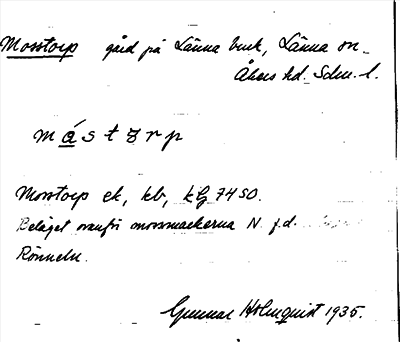 Mosstorp gård på Länna bruk, Länna sn.
Åkers hd. Sdm. l.
måstorp
Mosstorp ek, kb, kG 74 SO.
Beläget ovanför mossmarkerna N f.d.
Rönneln.
Gunnar Holmquist 1935.